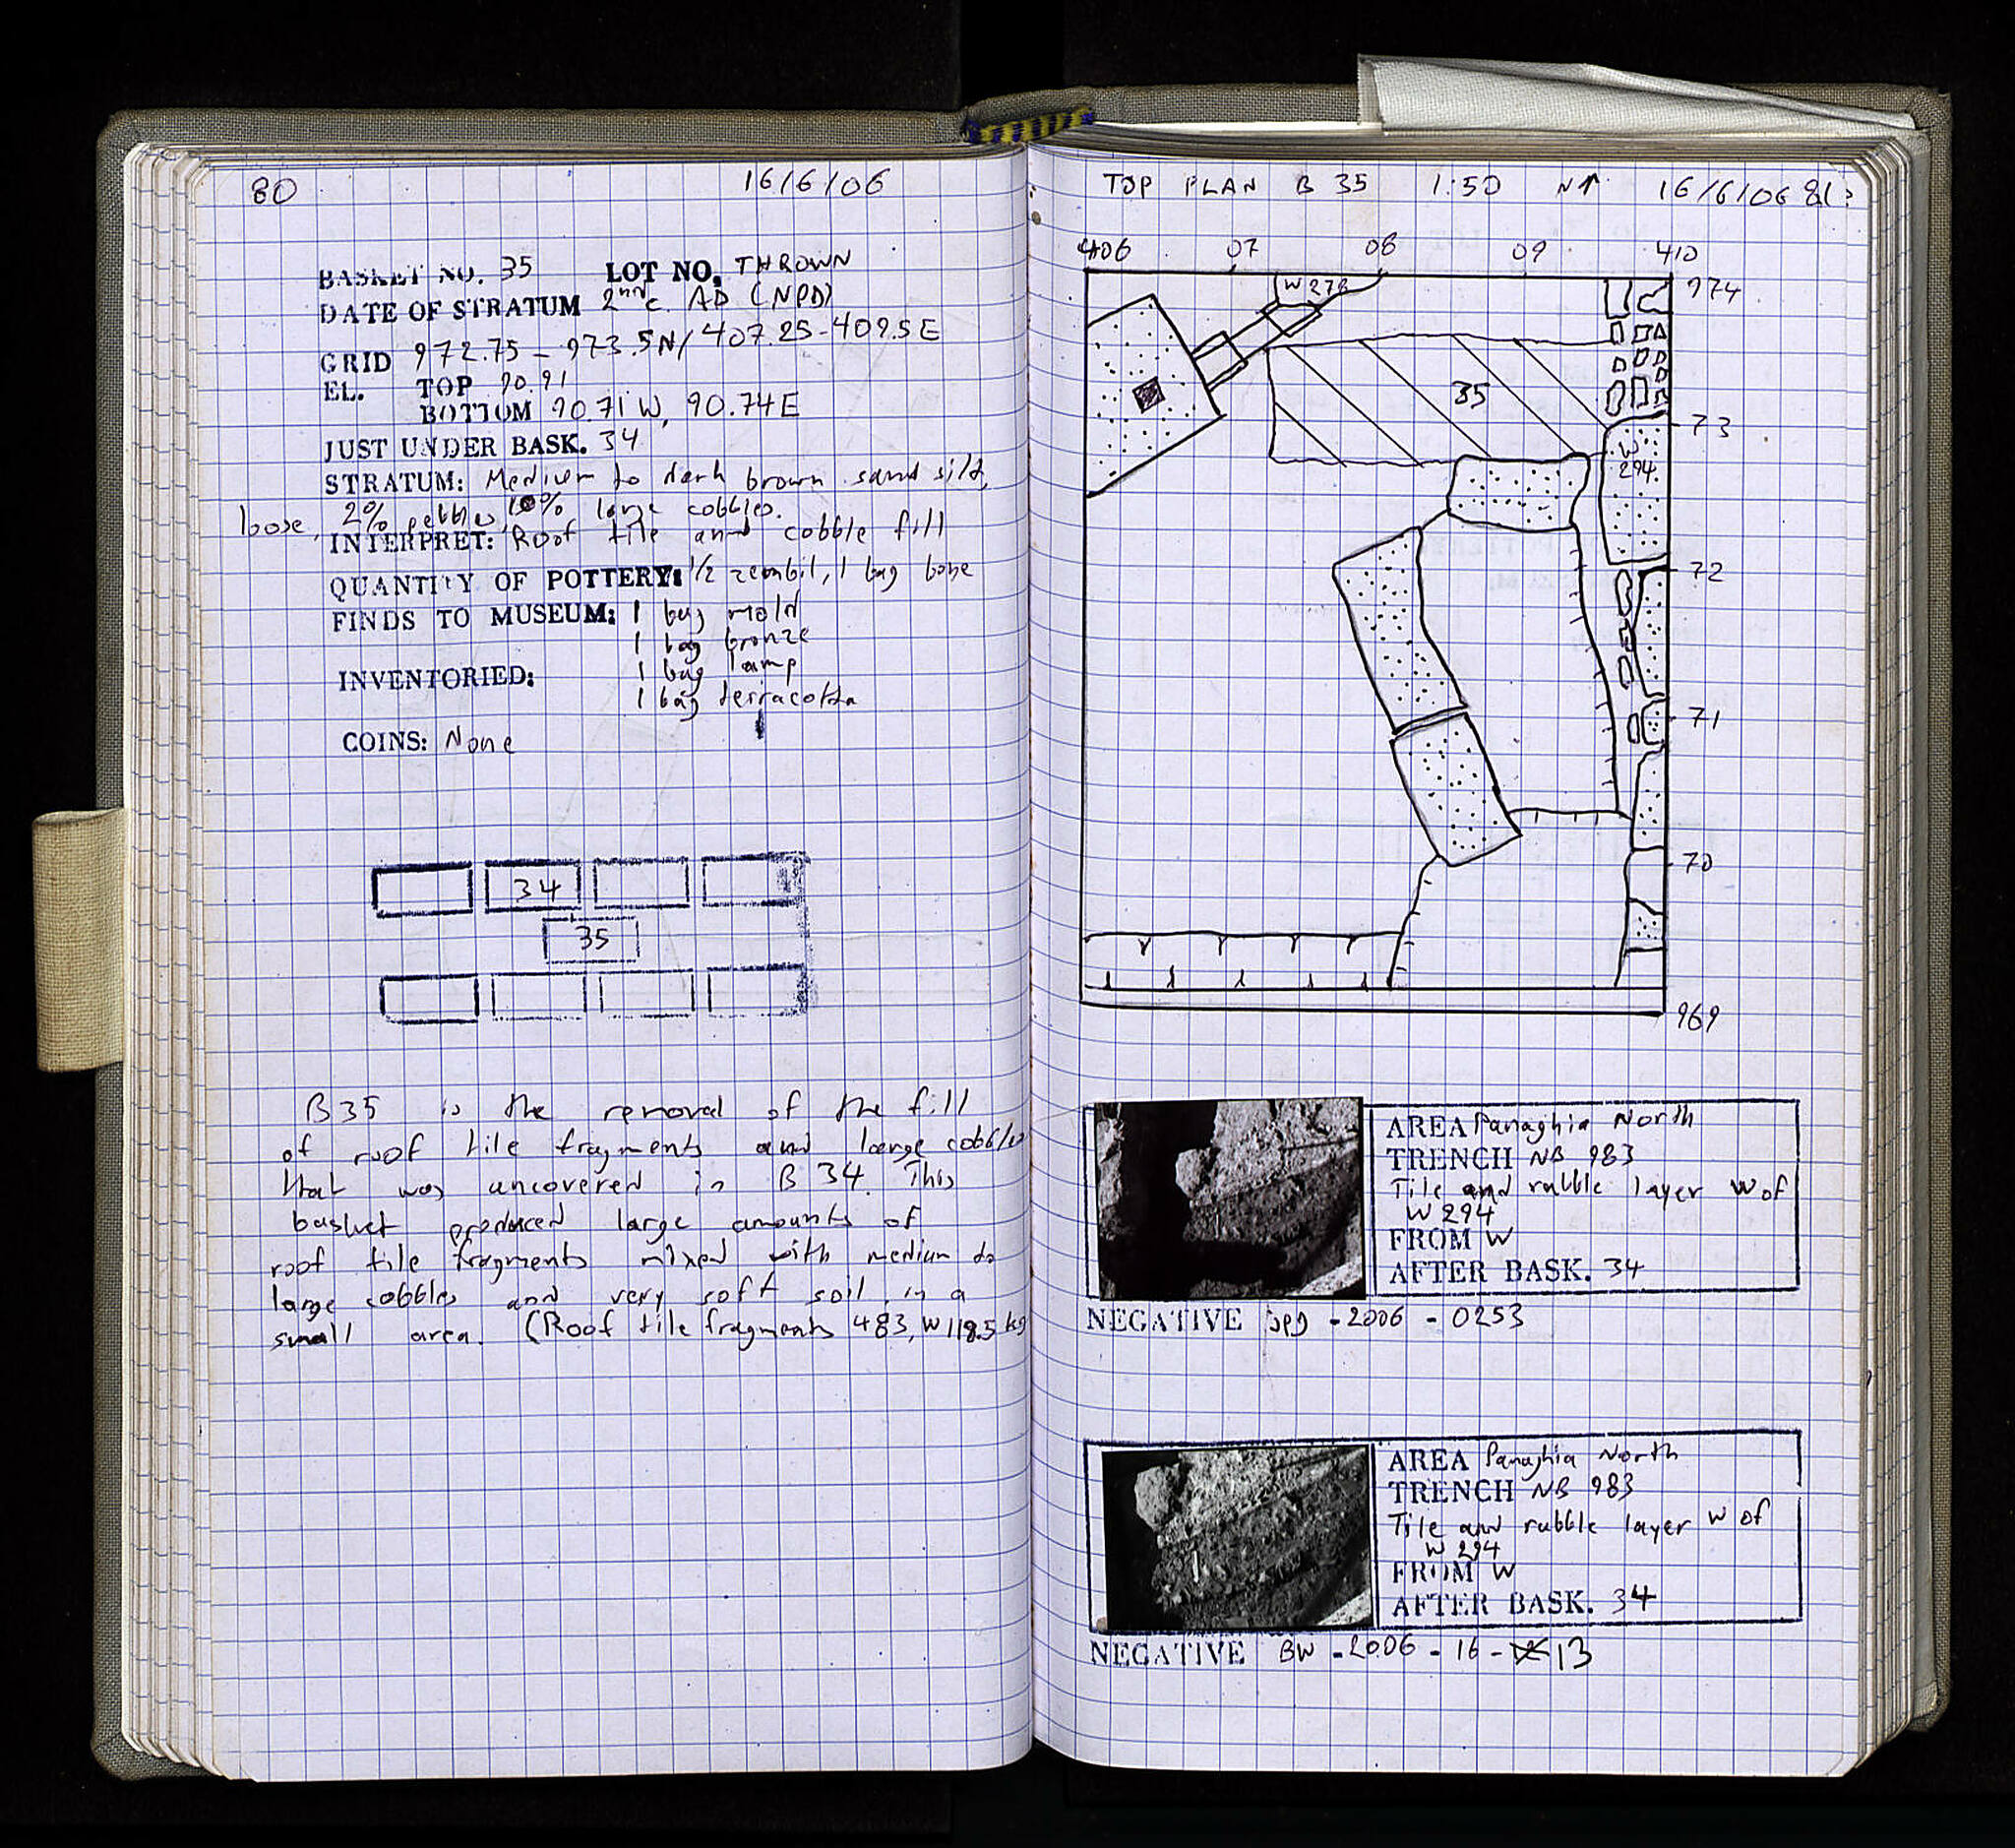 80
16/6/06
BASKET NO. 35 LOT NO. THROWN
DATE OF STRATUM 2nd c. AD (NPD)
GRID 972.75 - 973.5N/407.25-409.5E
EL. TOP 90.91
BOTTOM 90.71 W, 90.74 E
JUST UNDER BASK. 34
STRATUM: Medium to dark brown sand silt,
loose, 2% pebbles, 10% large cobbles.
INTERPRET: Roof tile and cobble fill
QUANTITY OF POTTERY: 1/2 zembil, 1 bag bone
FINDS TO MUSEUM: 1 bag mold
1 bag bronze
1 bag lamp
INVENTORIED:
1 bag terracotta
COINS: None
34
35
B35 is the removal of the fill
of roof tile fragments and large cobbles
that was uncovered in B 34. This
basket produced large amounts of
roof tile fragments mixed with medium to
large cobbles and very soft soil in a
small area. (Roof tile fragments 483, W 118.5 kg
TOP PLAN B 35 1:50 N↑ 16/6/06 81
406 07 08 09 410
W 278
974
35
73
W
294
72
71
70
969
AREA Panaghia North
TRENCH NB 983
Tile and rubble layer W of
W 294
FROM W
AFTER BASK. 34
NEGATIVE jpg - 2006 - 0253
AREA Panaghia North
TRENCH NB 983
Tile and rubble layer W of
W 294
FROM W
AFTER BASK. 34
NEGATIVE BW - 2006 - 16 - 13